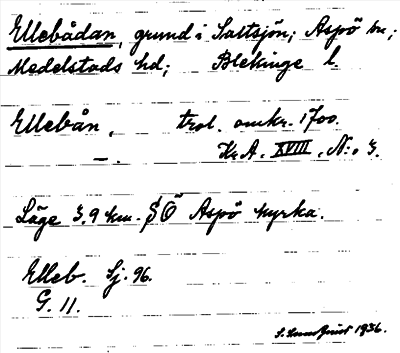 Ellebådan, grund i Saltsjön; Aspö sn;
Medelstads hd; Blekinge l.
Ellebån, trol. omkr. 1700.
— . Kr.A. XVIII, N:o 3.
Läge 3,9 km. SÖ Aspö kyrka.
Elleb. Sj. 96.
G. 11.
S. Lundquist 1936.